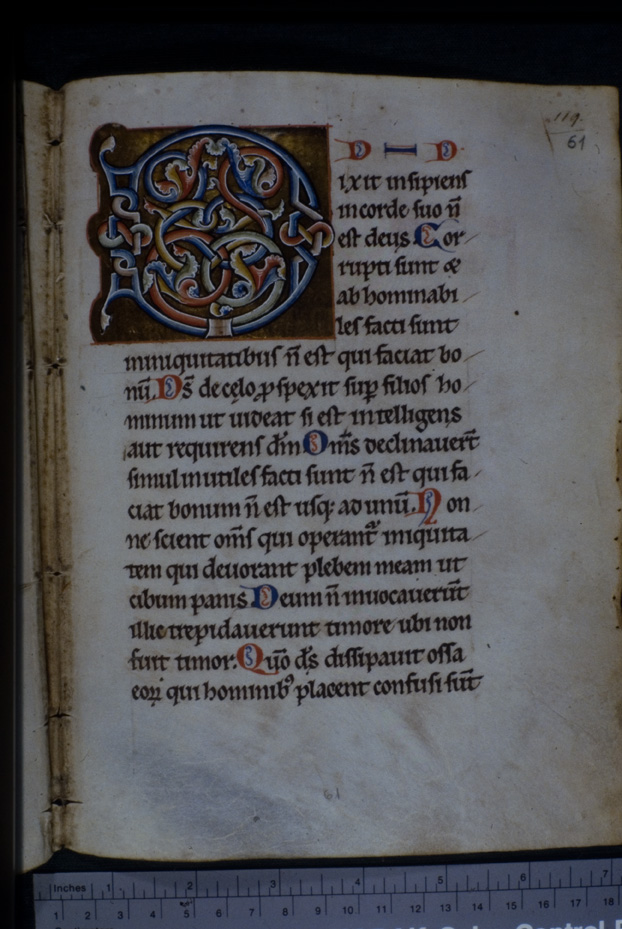 119.
61
D I D
ixit insipiens
in corde suo n̄
est deus Cor-
rupti sunt &
abhominabi-
les facti sunt
in iniquitatibus n̄ est qui faciat bo-
nū. Ds̄ de celo ꝓspexit suꝑ filios ho-
minum ut uideat si est intelligens
aut requirens dm̄ Om̄s declinauer̄t
simul inutiles facti sunt n̄ est qui fa-
ciat bonum n̄ est usq; ad unū. Non
ne scient om̄s qui operant̄ iniquita-
tem qui deuorant plebem meam ut
cibum panis Deum n̄ inuocauerūt
illic trepidauerunt timore ubi non
fuit timor. Qūo ds̄ dissipauit ossa
eoꝝ qui hominibꝰ placent confusi sūt
61
Inches 1 2 3 4 5 6 7
1 2 3 4 5 6 7 8 9 10 11 12 13 14 15 16 17 18
Color Control